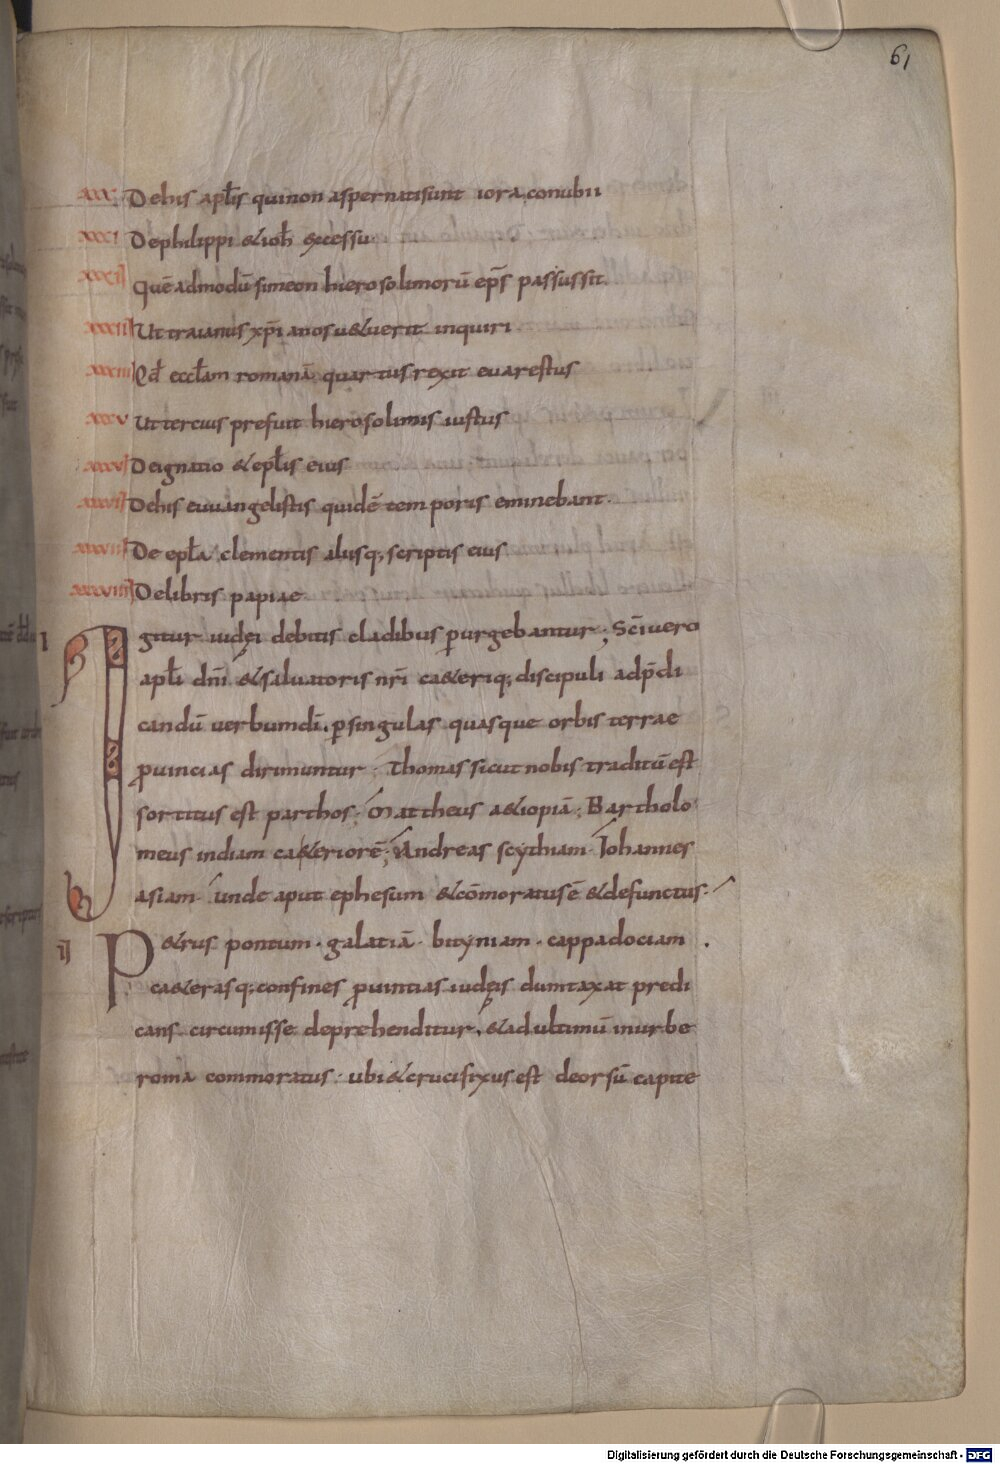 61
xxx De his apl̅is qui non aspernati sunt iora conubii
xxxi De philippi & ioh̅ excessu.
xxxii Quē admodū simeon hierosolimorū ep̅s passus sit.
xxxiii Ut traianus xp̅i anos u&uerit inquiri
xxxiiii Qd̅ eccl̅am romanā quartus rexit euarestus
xxxv Ut tercius prefuit hierosolimis iustus
xxxvi De ignatio & epl̅is eius
xxxvii De his euuangelistis qui dē temporis eminebant.
xxxviii De epl̅a clementis aliisq; scriptis eius
xxxviiii De libris papiae
I Igitur iudęi debitis cladibus purgebantur; Sc̅i uero
apl̅i dn̅i & saluatoris nr̅i ca&eriq; discipuli ad p̅di
candū uerbum dī. p singulas quasque orbis terrae
puincias dirimuntur. Thomas sicut nobis traditū est
sortitus est parthos. Mattheus a&iopiā. Bartholo
meus indiam ca&eriorē; Andreas scythiam. Iohannes
asiam. unde aput ephesum & cōmoratus ē & defunctus.
II P&rus pontum. galatiā. bityniam. cappadociam.
ca&erasq; confines puintias iudęis dumtaxat predi
cans circumisse deprehenditur, & ad ultimū in urbe
roma commoratus. ubi & crucifixus est deorsū capite
Digitalisierung gefördert durch die Deutsche Forschungsgemeinschaft - DFG